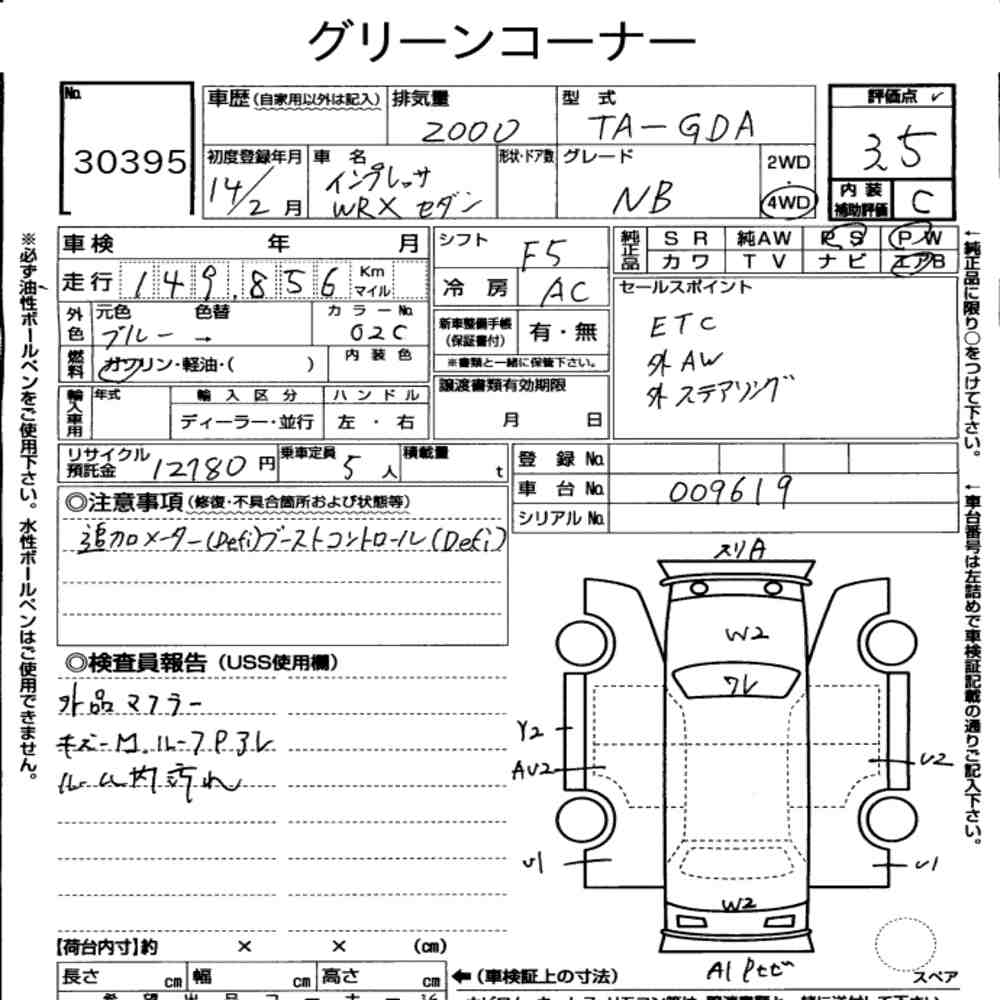 グリーンコーナー
No.
30395
車歴(自家用以外は記入)
排気量
2000
型 式
TA-GDA
評価点
3.5
初度登録年月
14/2 月
車 名
インプレッサ
WRX セダン
形状・ドア数
グレード
NB
2WD
・
4WD
内 装
補助評価
C
※必ず油性ボールペンをご使用下さい。水性ボールペンはご使用できません。
車 検 年 月
走 行 149,856 Km
マイル
外色
元色 色替
ブルー →
カラーNo.
02C
燃料
ガソリン・軽油・( )
内 装 色
輸入車用
年式
輸 入 区 分
ディーラー・並行
ハ ン ド ル
左 ・ 右
シフト
F5
冷 房
AC
新車整備手帳
(保証書付)
有・無
※書類と一緒に保管下さい。
譲渡書類有効期限
月 日
純正品
S R 純AW P S P W
カ ワ T V ナ ビ エアB
セールスポイント
ETC
外AW
外ステアリング
←純正品に限り○をつけて下さい。
リサイクル
預託金
12780 円
乗車定員
5 人
積載量
t
登 録 No.
車 台 No.
009619
シリアル No.
←車台番号は左詰めで車検証記載の通りご記入下さい。
◎注意事項(修復・不具合箇所および状態等)
追加メーター(Defi)ブーストコントロール(Defi)
◎検査員報告(USS使用欄)
外品マフラー
キズーM.ルーフP3レ
ルーム内汚れ
スリA
W2
ワレ
Y2
AU2
U2
U1
U1
W2
A1 Pセビ
スペア
【荷台内寸】約 × × (cm)
長さ cm 幅 cm 高さ cm
←(車検証上の寸法)